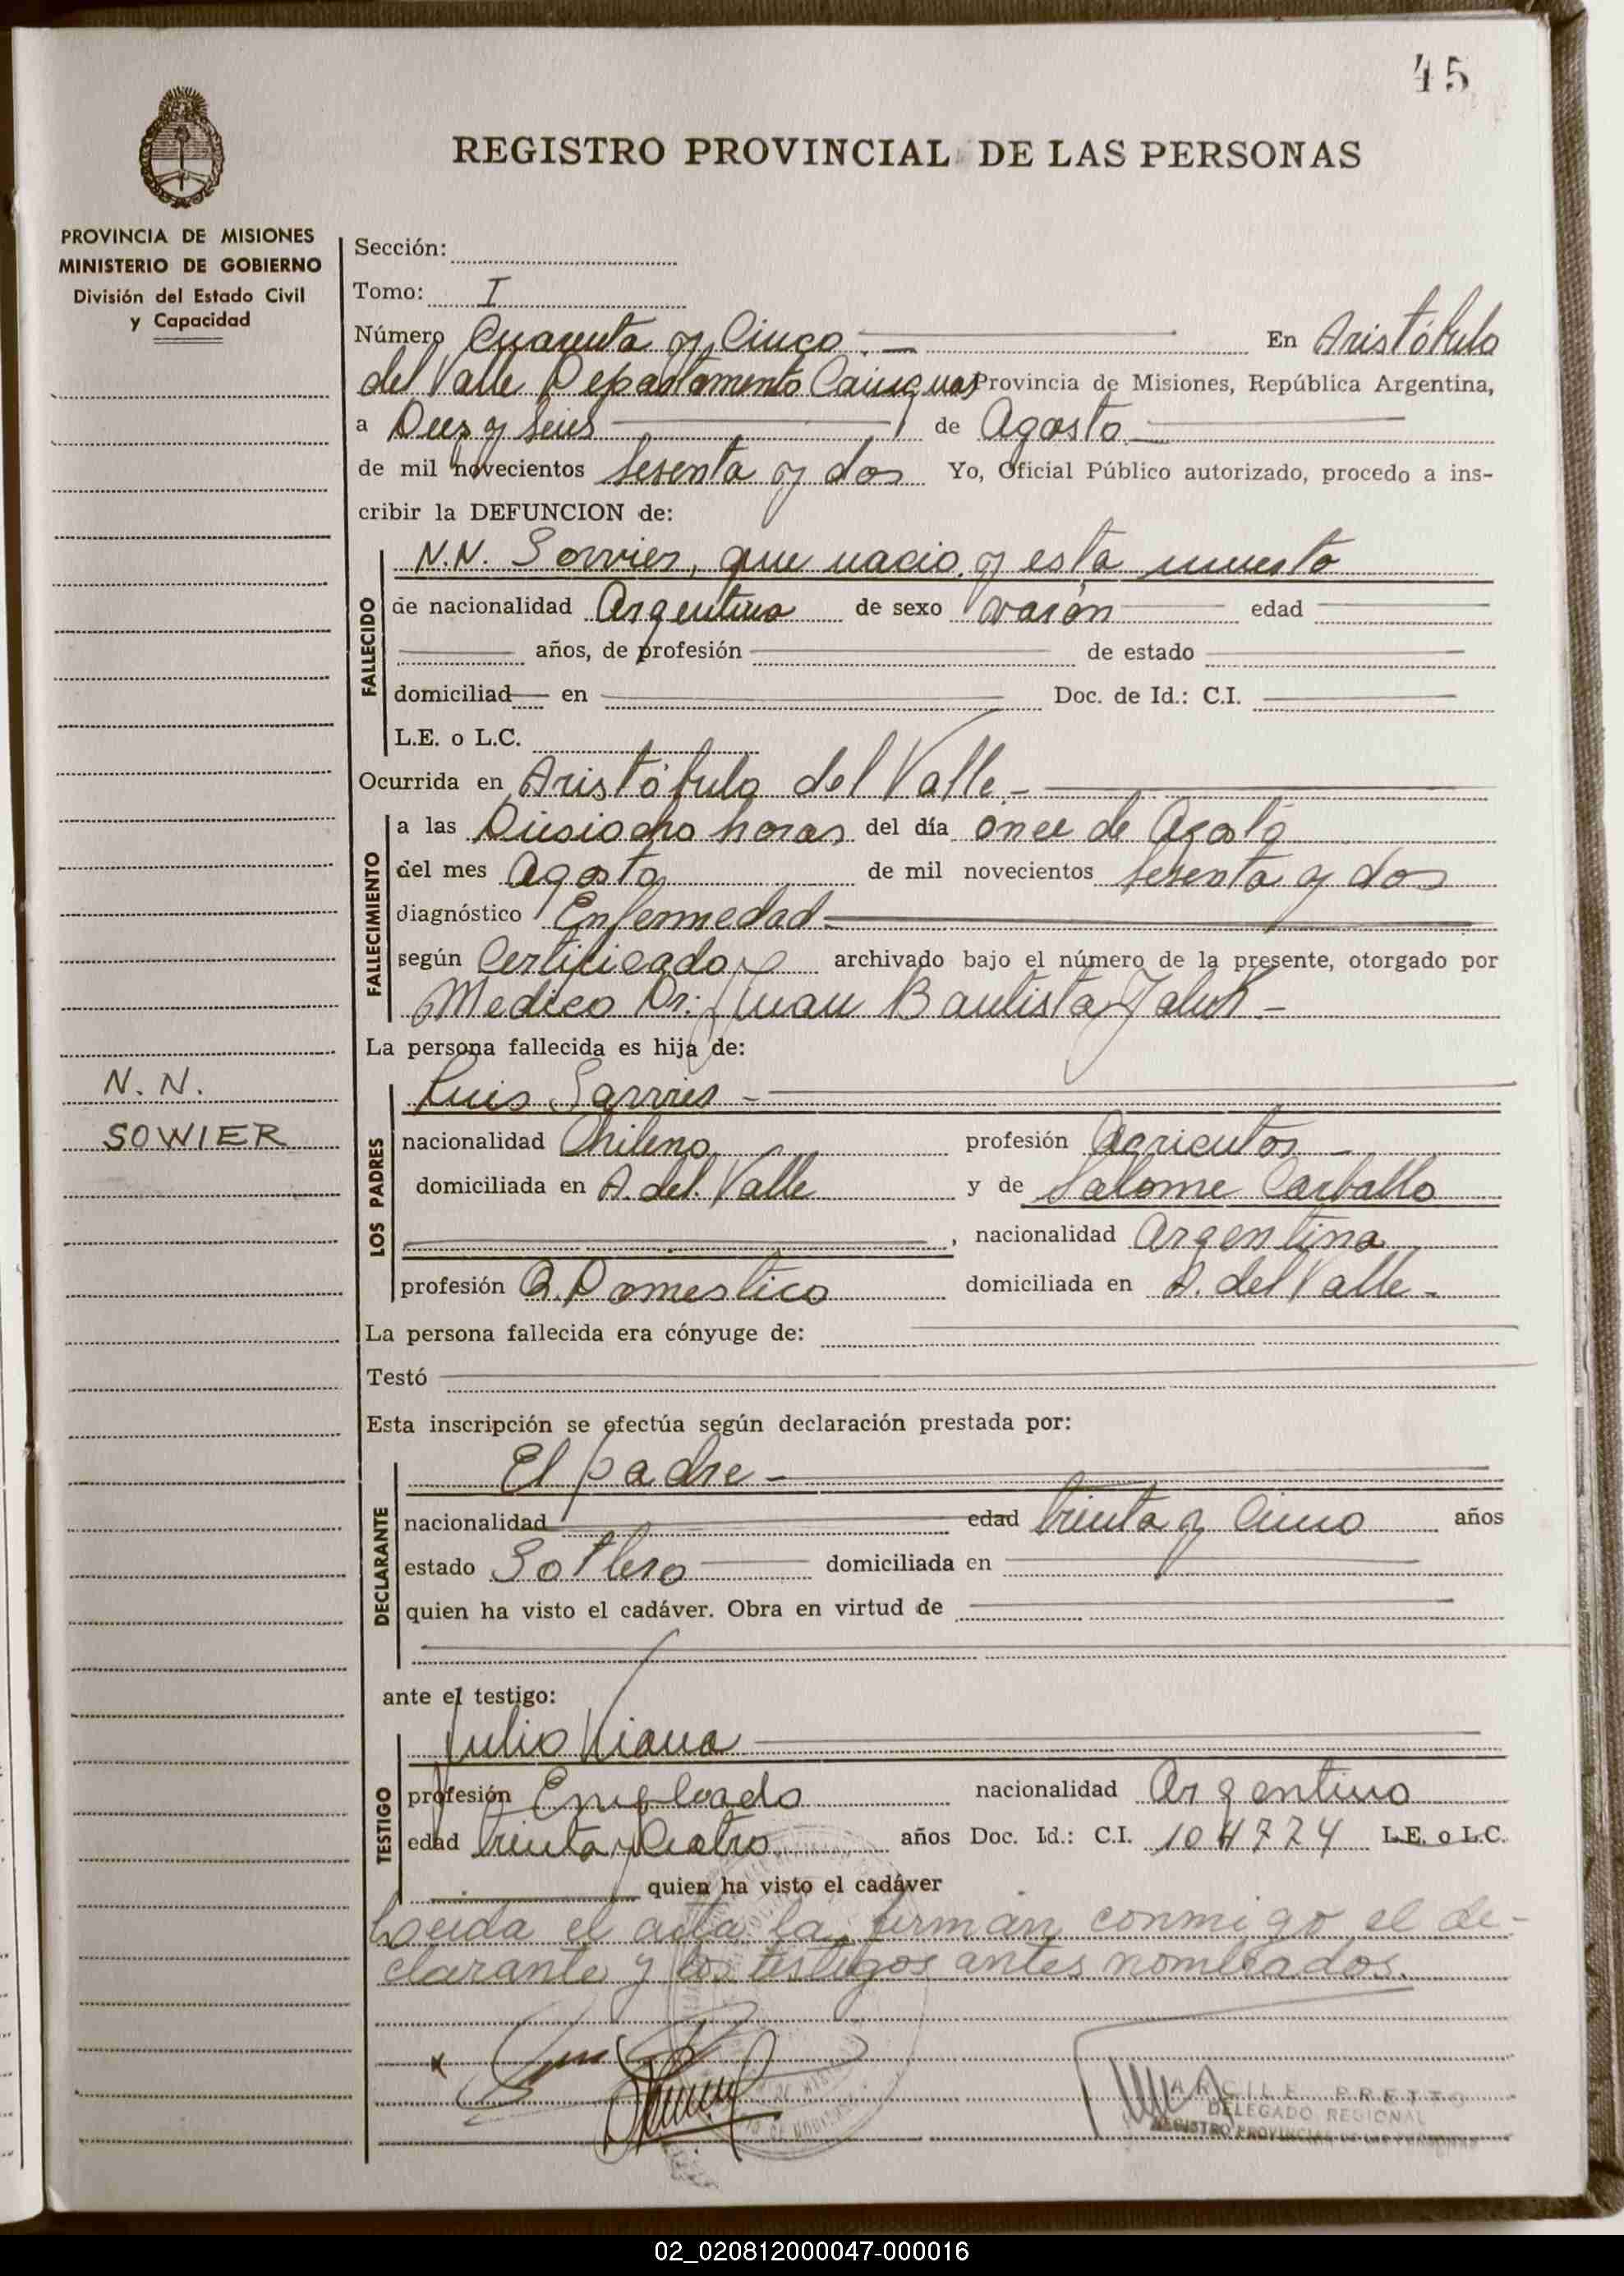 45
REGISTRO PROVINCIAL DE LAS PERSONAS
PROVINCIA DE MISIONES
MINISTERIO DE GOBIERNO
División del Estado Civil
y Capacidad
Sección:
Tomo: I
Número Cuarenta y Cinco.— En Aristóbulo
del Valle Departamento Cainguas Provincia de Misiones, República Argentina,
a Diez y Seis de Agosto
de mil novecientos Sesenta y dos Yo, Oficial Público autorizado, procedo a ins-
cribir la DEFUNCION de:
N.N. que nacio y esta muerto
FALLECIDO
de nacionalidad Argentina de sexo varón edad
años, de profesión de estado
domiciliad en Doc. de Id.: C.I.
L.E. o L.C.
Ocurrida en Aristóbulo del Valle.-
FALLECIMIENTO
a las horas del día once de Agosto
del mes Agosto de mil novecientos sesenta y dos
diagnóstico Enfermedad
según Certificado archivado bajo el número de la presente, otorgado por
Medico Dr: Juan Bautista
La persona fallecida es hija de:
N. N.
SOWIER
LOS PADRES
Luis
nacionalidad Chileno profesión
domiciliada en A. del Valle y de Salome Carballo
, nacionalidad Argentina
profesión Q. Domestico domiciliada en A. del Valle -
La persona fallecida era cónyuge de:
Testó
Esta inscripción se efectúa según declaración prestada por:
DECLARANTE
El padre -
nacionalidad edad años
estado domiciliada en
quien ha visto el cadáver. Obra en virtud de
ante el testigo:
TESTIGO
Julio Viana
profesión Empleado nacionalidad Argentino
edad treinta y años Doc. Id.: C.I. 104774 L.E. o L.C.
quien ha visto el cadáver
Leida el acta la firman conmigo el de-
clarante y los testigos antes nombrados.
DELEGADO REGIONAL
REGISTRO PROVINCIAL DE LAS PERSONAS
02_020812000047-000016